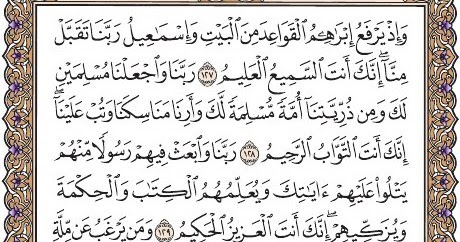 وَإِذْ يَرْفَعُ إِبْرَٰهِـۧمُ ٱلْقَوَاعِدَ مِنَ ٱلْبَيْتِ وَإِسْمَـٰعِيلُ رَبَّنَا تَقَبَّلْ
مِنَّآ ۖ إِنَّكَ أَنتَ ٱلسَّمِيعُ ٱلْعَلِيمُ ١٢٧ رَبَّنَا وَٱجْعَلْنَا مُسْلِمَيْنِ
لَكَ وَمِن ذُرِّيَّتِنَآ أُمَّةً مُّسْلِمَةً لَّكَ وَأَرِنَا مَنَاسِكَنَا وَتُبْ عَلَيْنَآ ۖ
إِنَّكَ أَنتَ ٱلتَّوَّابُ ٱلرَّحِيمُ ١٢٨ رَبَّنَا وَٱبْعَثْ فِيهِمْ رَسُولًا مِّنْهُمْ
يَتْلُوا۟ عَلَيْهِمْ ءَايَـٰتِكَ وَيُعَلِّمُهُمُ ٱلْكِتَـٰبَ وَٱلْحِكْمَةَ
وَيُزَكِّيهِمْ ۚ إِنَّكَ أَنتَ ٱلْعَزِيزُ ٱلْحَكِيمُ ١٢٩ وَمَن يَرْغَبُ عَن مِّلَّةِ